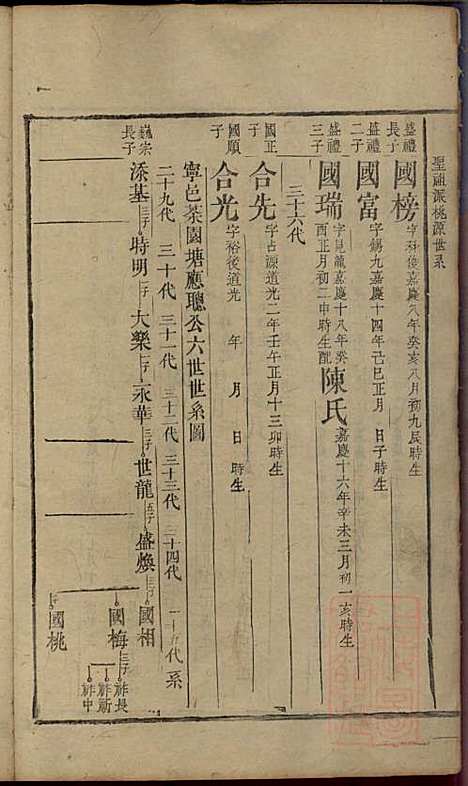 聖祖派桃源世系
盛禮長子 國榜 嘉慶八年癸亥八月初九辰時生
盛禮二子 國富 字錫九嘉慶十四年己巳正月 日子時生
盛禮三子 國瑞 字見龍嘉慶十八年癸酉正月初二申時生配陳氏嘉慶十六年辛未三月初一亥時生
三十六代
國正子 合先 字占源道光二年壬午正月十三卯時生
國順子 合光 字裕後道光 年 月 日 時生
寧邑茶園塘應聰公六世世系圖
二十九代 三十代 三十一代 三十二代 三十三代 三十四代 三十五代 系
巍宗長子 添基 三子 時明 二子 大樂 二子 永華 三子 世龍 五子 盛煥 三子 國相
國梅 三子 祚長
祚新
祚中
國桃